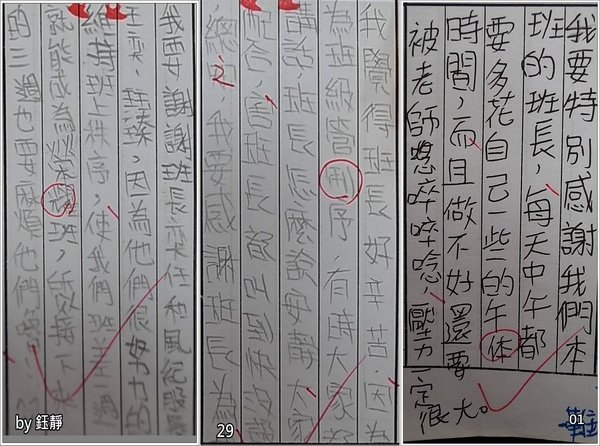 我要謝謝班長奕任和風紀股
因為他們很努力的
維持班上秩序,使我們班
就能成為榮譽班,所以接下來
的三週也要麻煩他們
by 鈺靜
我覺得班長好辛苦,因
為班級管制序,有時大家
講話,班長怎麼說安靜大家
配合,害班長都叫到快沒
總之,我要感謝班長為
29
我要特別感謝我們本
班的班長,每天中午都
要多花自己一些的午体
時間,而且做不好還要
被老師唸啐啐唸,壓力一定很大。
01